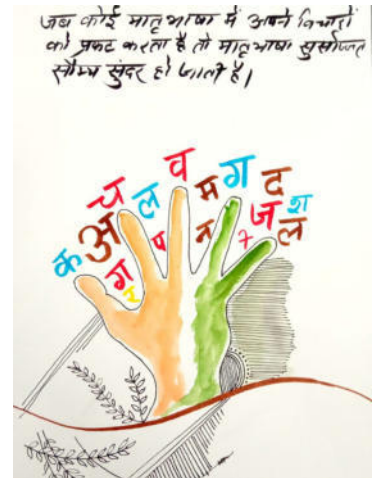 जब कोई मातृभाषा में अपने विचारों
को प्रकट करता है तो मातृभाषा सुसज्जित
सौम्य सुंदर हो जाती है।
व
च ल म ग द
क अ प न ज श
ग र ल